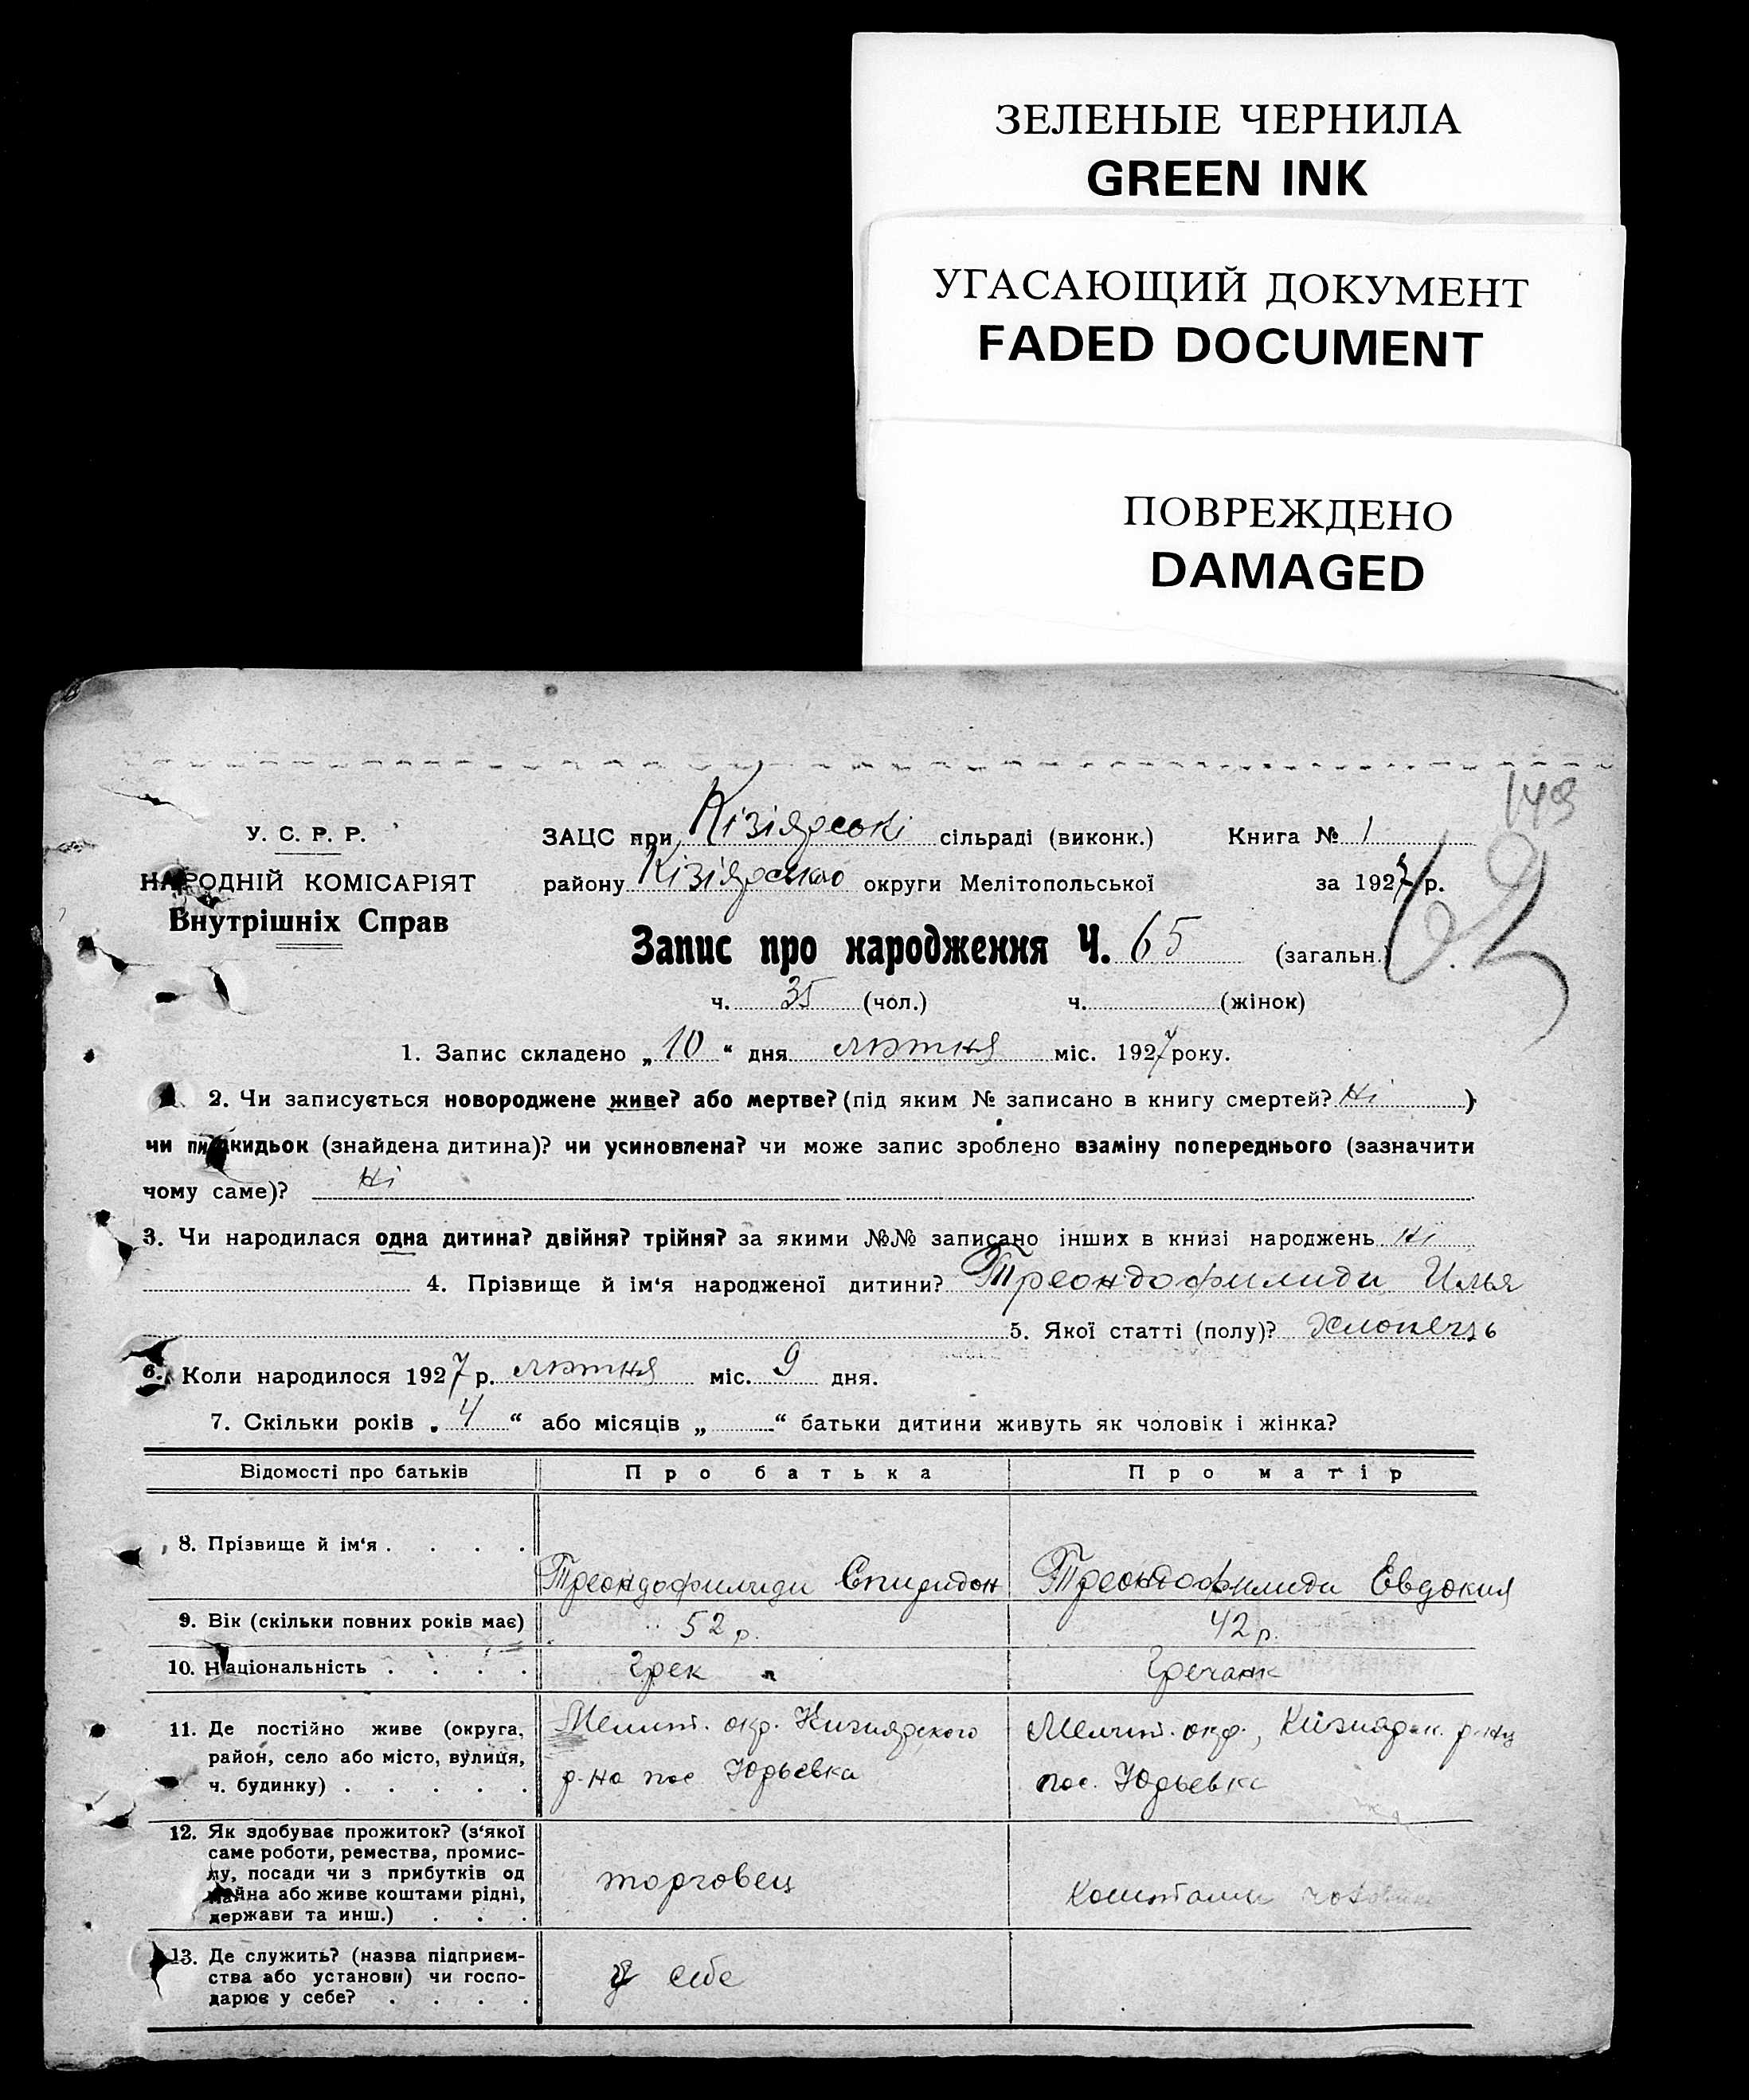 ЗЕЛЕНЫЕ ЧЕРНИЛА
GREEN INK
УГАСАЮЩИЙ ДОКУМЕНТ
FADED DOCUMENT
ПОВРЕЖДЕНО
DAMAGED
У. С. Р. Р.
НАРОДНІЙ КОМІСАРІЯТ
Внутрішніх Справ
ЗАЦС при Кізіярські сільраді (виконк.) Книга № 1
району Кізіярського округи Мелітопольської за 1927 р.
Запис про народження Ч. 65 (загальн.)
ч. 35 (чол.) ч. (жінок)
1. Запис складено „10“ дня лютня міс. 1927 року.
2. Чи записується новороджене живе? або мертве? (під яким № записано в книгу смертей? Ні )
чи підкидьок (знайдена дитина)? чи усиновлена? чи може запис зроблено взаміну попереднього (зазначити
чому саме)? Ні
3. Чи народилася одна дитина? двійня? трійня? за якими №№ записано інших в книзі народжень Ні
4. Прізвище й ім'я народженої дитини? Треондофилиди Илья
5. Якої статті (полу)? Хлопець
6. Коли народилося 1927 р. лютня міс. 9 дня.
7. Скільки років „4“ або місяців „ “ батьки дитини живуть як чоловік і жінка?
Відомості про батьків Про батька Про матір
8. Прізвище й ім'я . . . . Треондофилиди Спиридон Треондофилиди Евдокия
9. Вік (скільки повних років має) 52 р. 42 р.
10. Національність . . . . грек Гречанк
11. Де постійно живе (округа, Мелит. окр. Кизиярского Мелит. окр., Кизиярск. р-ну
район, село або місто, вулиця, р-на пос. Юрьевка пос. Юрьевка
ч. будинку) . . . . .
12. Як здобуває прожиток? (з'якої
саме роботи, ремества, промис-
лу, посади чи з прибутків од торговец Коштами
майна або живе коштами рідні,
держави та инш.) . . .
13. Де служить? (назва підприєм-
ства або установи) чи госпо- у себе
дарює у себе? . . . .